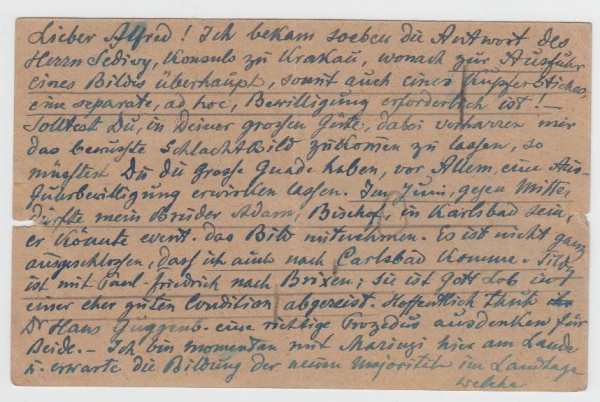 Lieber Alfred! Ich bekam soeben die Antwort des
Herrn Sedivy, Konsuls zu Krakau, wonach zur Ausfuhr
eines Bildes überhaupt, somit auch eines Kupferstiches,
eine separate, ad hoc, Bewilligung erforderlich ist! –
Solltest Du, in Deiner grossen Güte, dabei verharren mir
das bewusste Schlachtbild zukomen zu lassen, so
müsstest Du die grosse Gnade haben, vor Allem, eine Aus-
fuhrbewilligung erwirken lassen. Im Juni, gegen Mitte,
dürfte mein Bruder Adam, Bischof, in Karlsbad sein,
er könnte event. das Bild mitnehmen. Es ist nicht ganz
ausgeschlossen, dass ich auch nach Carlsbad komme.
ist mit Paul-Friedrich nach Brixen; sie ist Gott Lob in
einer eher guten Condition abgereist. Hoffentlich
Dr Hans Guggenb. eine richtige ausdenken für
Beide. – Ich bin momentan mit hier am Lande
u. erwarte die Bildung der neuen Majorität im Landtage
welche